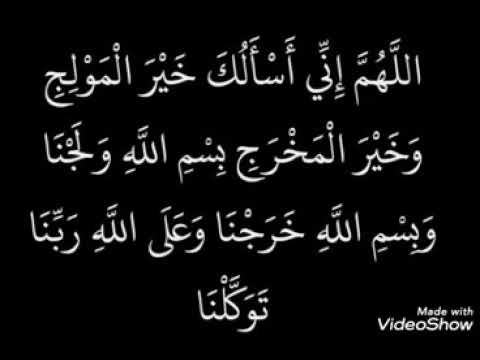 اللَّهُمَّ إِنِّي أَسْأَلُكَ خَيْرَ الْمَوْلِجِ
وَخَيْرَ الْمَخْرَجِ بِسْمِ اللَّهِ وَلَجْنَا
وَبِسْمِ اللَّهِ خَرَجْنَا وَعَلَى اللَّهِ رَبِّنَا
تَوَكَّلْنَا
Made with
VideoShow